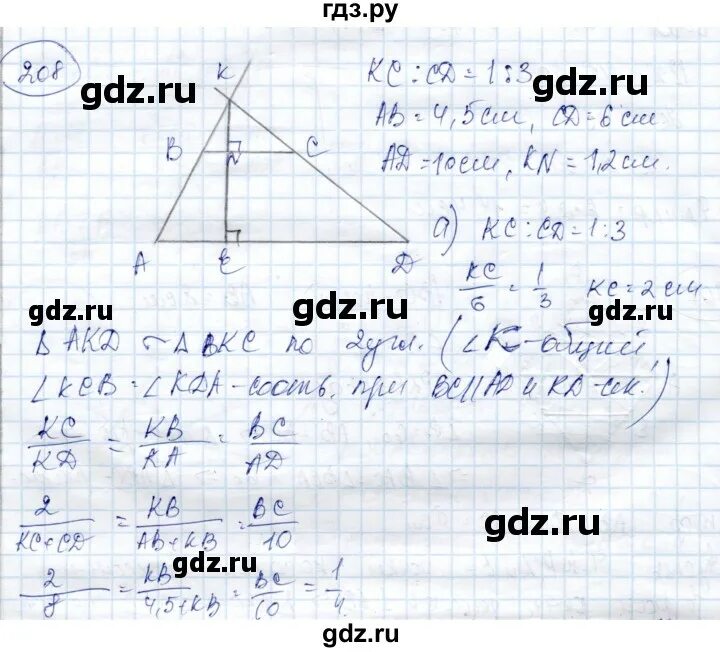 гдз.ру
208
gdz.ru
K
B
N
C
A
E
D
KC:CD=1:3
gdz.ru
AB=4,5см, CD=6см
AD=10см, KN=1,2см.
а) KC:CD=1:3
KC/6 = 1/3 KC=2см.
gdz.ru
gdz.ru
Δ AKD ~ Δ BKC по 2угл. (∠K-общий,
∠KCB=∠KDA-соотв. при BC||AD и KD-сек.)
KC/KD = KB/KA = BC/AD
gdz.ru
gdz.ru
2/KC+CD = KB/AB+KB = BC/10
gdz.ru
2/8 = KB/4,5+KB = BC/10 = 1/4
gdz.ru